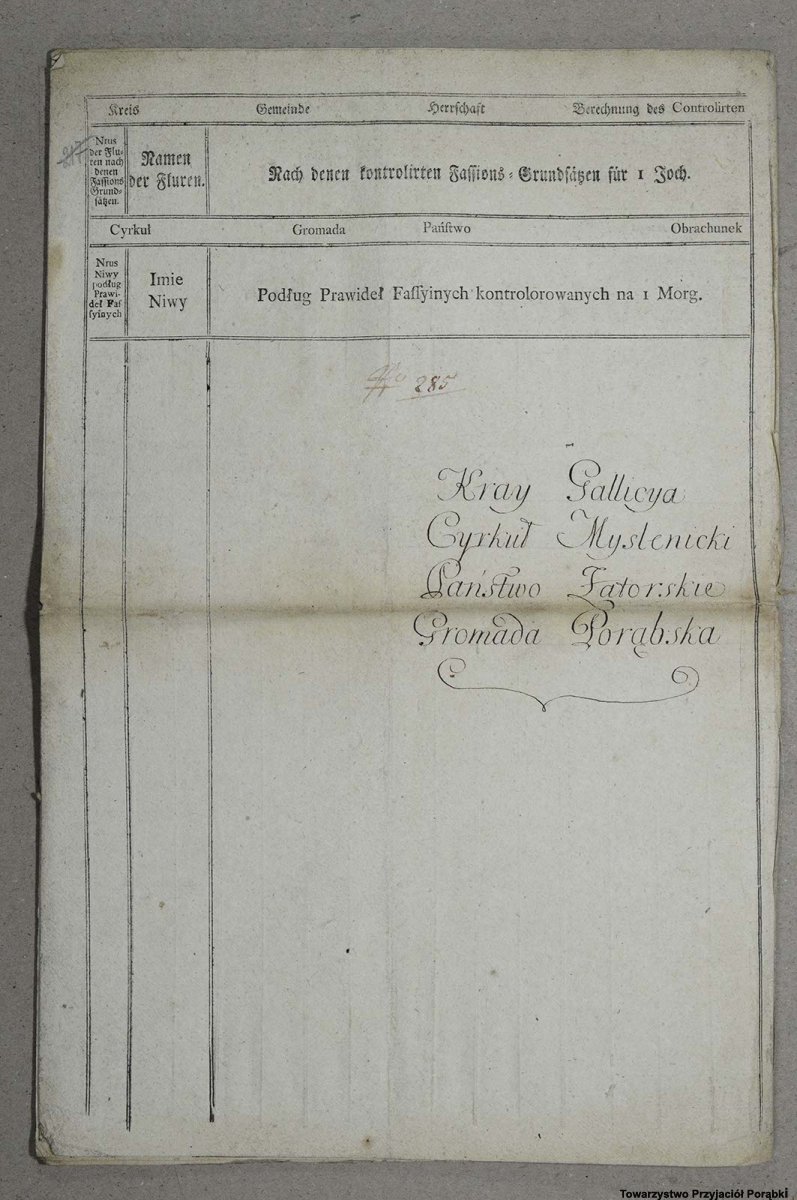 Kreis Gemeinde Herrschaft Berechnung des Controlirten
Nrus
der Flu-
ren nach
denen
Fassions
Grund-
sätzen.
Namen
der Fluren.
Nach denen kontrolirten Fassions-Grundsätzen für 1 Joch.
Cyrkuł Gromada Państwo Obrachunek
Nrus
Niwy
podług
Prawi-
deł Faſ
ſyinych
Imie
Niwy
Podług Prawideł Faſſyinych kontrolorowanych na 1 Morg.
285
Kray Gallicya
Cyrkuł Myslenicki
Państwo Zatorskie
Gromada Porąbska
Towarzystwo Przyjaciół Porąbki